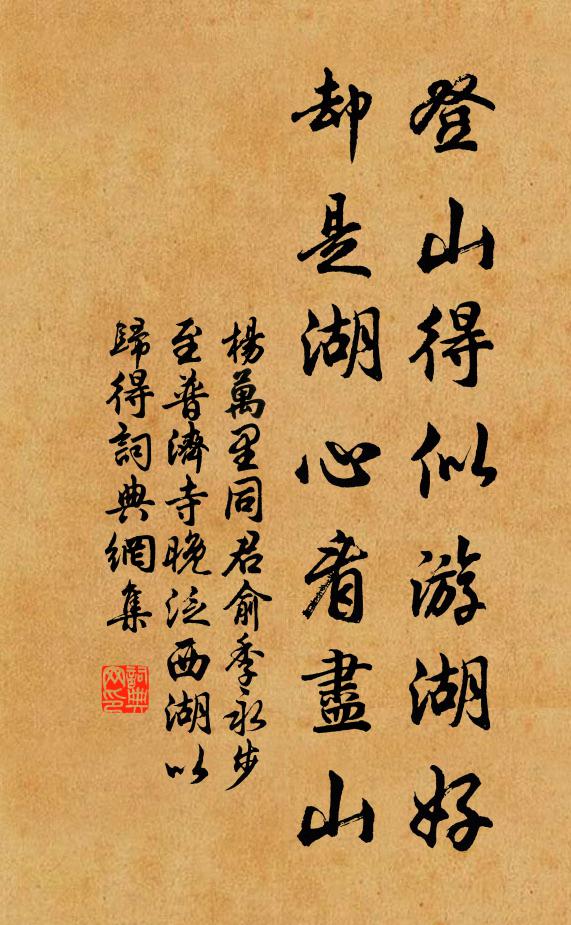 登山得似游湖好
却是湖心看盡山
楊萬里同君俞季永步
至普濟寺晚泛西湖以
歸得詞典網集
詞典网印